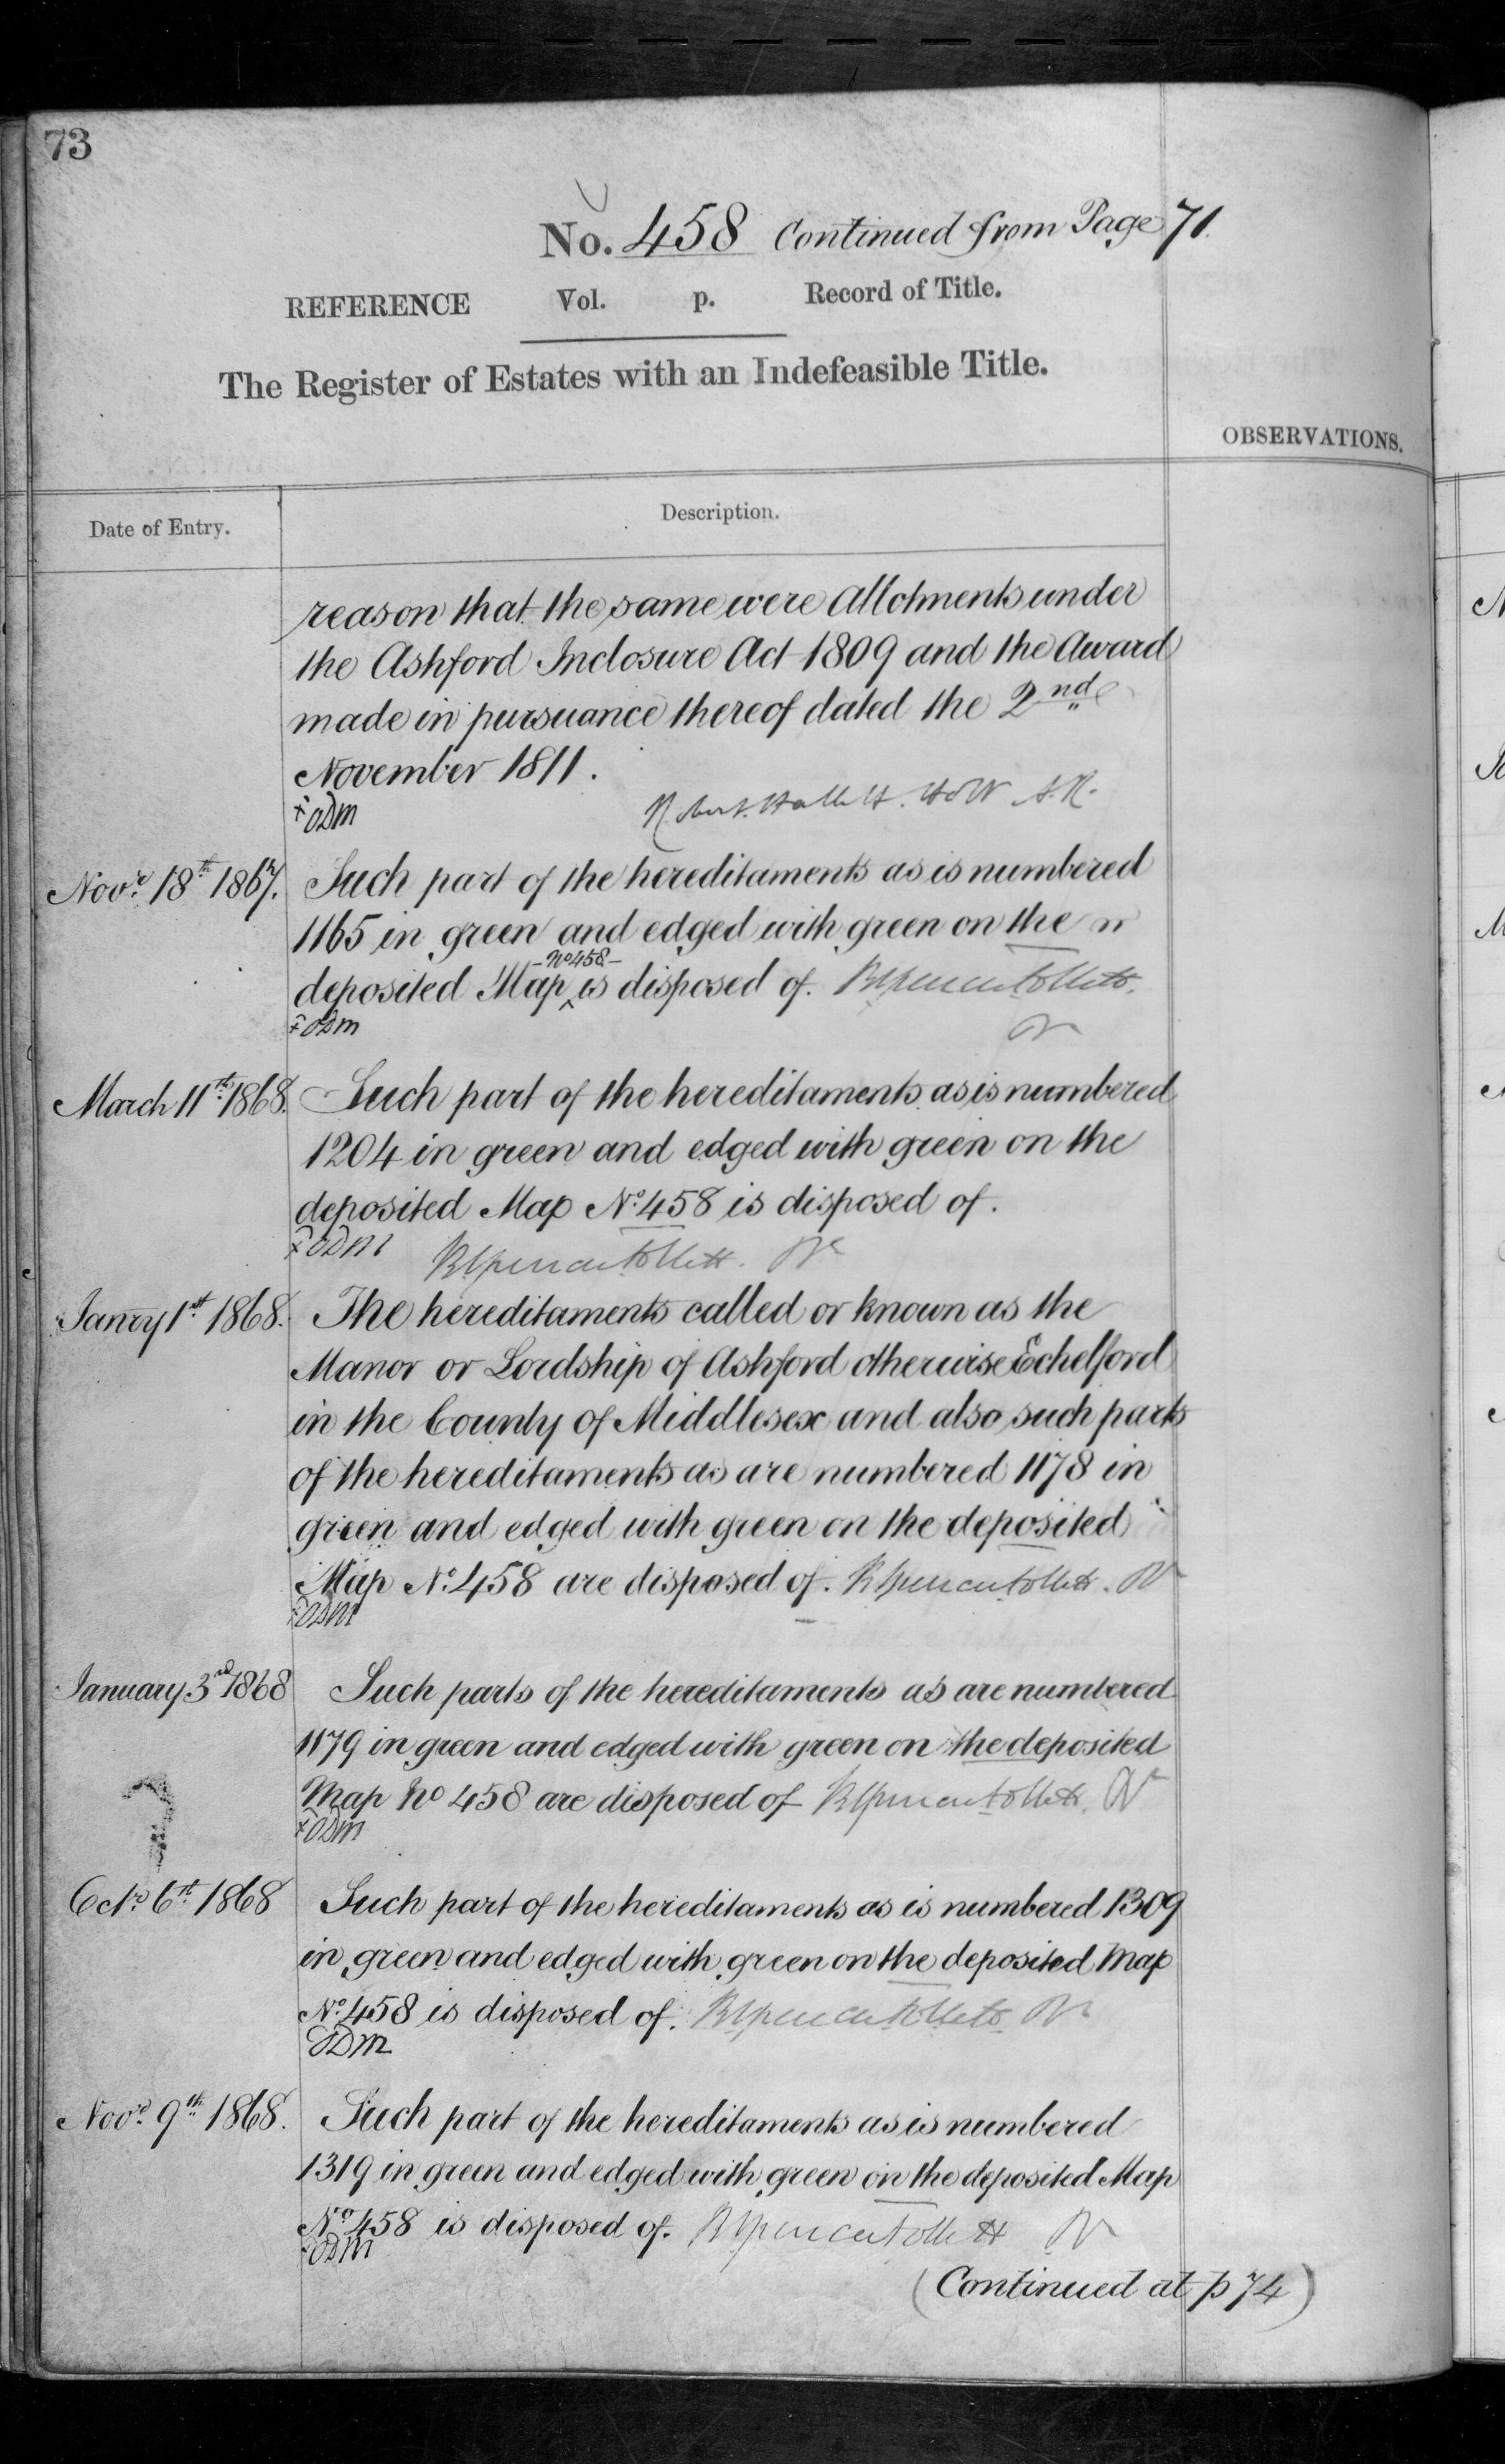 73
No. 458 Continued from Page 71.
REFERENCE Vol. p. Record of Title.
The Register of Estates with an Indefeasible Title.
OBSERVATIONS.
Date of Entry. Description.
reason that the same were Allotments under
the Ashford Inclosure Act 1809 and the Award
made in pursuance thereof dated the 2nd
November 1811.
ODM
Novr. 18th 1867. Such part of the hereditaments as is numbered
1165 in green and edged with green on the
- No 458 -
deposited Map ^ is disposed of.
ODM
March 11th 1868. Such part of the hereditaments as is numbered
1204 in green and edged with green on the
deposited Map No. 458 is disposed of.
ODM
Janry 1st 1868. The hereditaments called or known as the
Manor or Lordship of Ashford otherwise Echelford
in the County of Middlesex and also such parts
of the hereditaments as are numbered 1178 in
green and edged with green on the deposited
Map No. 458 are disposed of.
ODM
January 3rd 1868 Such parts of the hereditaments as are numbered
1179 in green and edged with green on the deposited
Map No 458 are disposed of
ODM
Octr. 6th 1868 Such part of the hereditaments as is numbered 1309
in green and edged with green on the deposited Map
No. 458 is disposed of.
ODM
Novr. 9th 1868. Such part of the hereditaments as is numbered
1319 in green and edged with green on the deposited Map
No. 458 is disposed of.
ODM
(Continued at p 74)